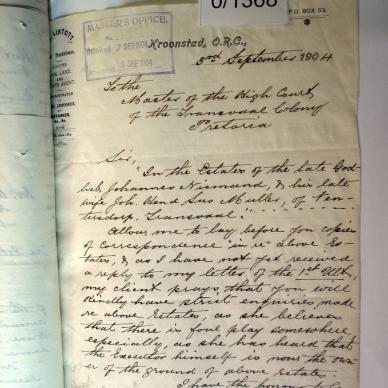 0/1368
P.O. BOX 53.
MASTER'S OFFICE,
No.
7 SEP 1904
SEP 1904
Kroonstad, O.R.C.,
3rd September 1904
To the
Master of the High Court
of the Transvaal Colony
Pretoria
Sir,
"In the Estates of the late God-
lieb Johannes Niemand, & his late
wife Joh. Muller, of Ven-
tersdorp, Transvaal"
Allow me to lay before you copies
of Correspondence in re above Es-
tates, & as I have not yet received
a reply to my letter of the 1st Ult,
my client prays that you will
kindly have strict enquiries made
re above Estates, as she believes
that there is foul play somewhere
especially, as she has heard that
the Executor himself is now the own-
er of the ground of above estate.
I have the honour